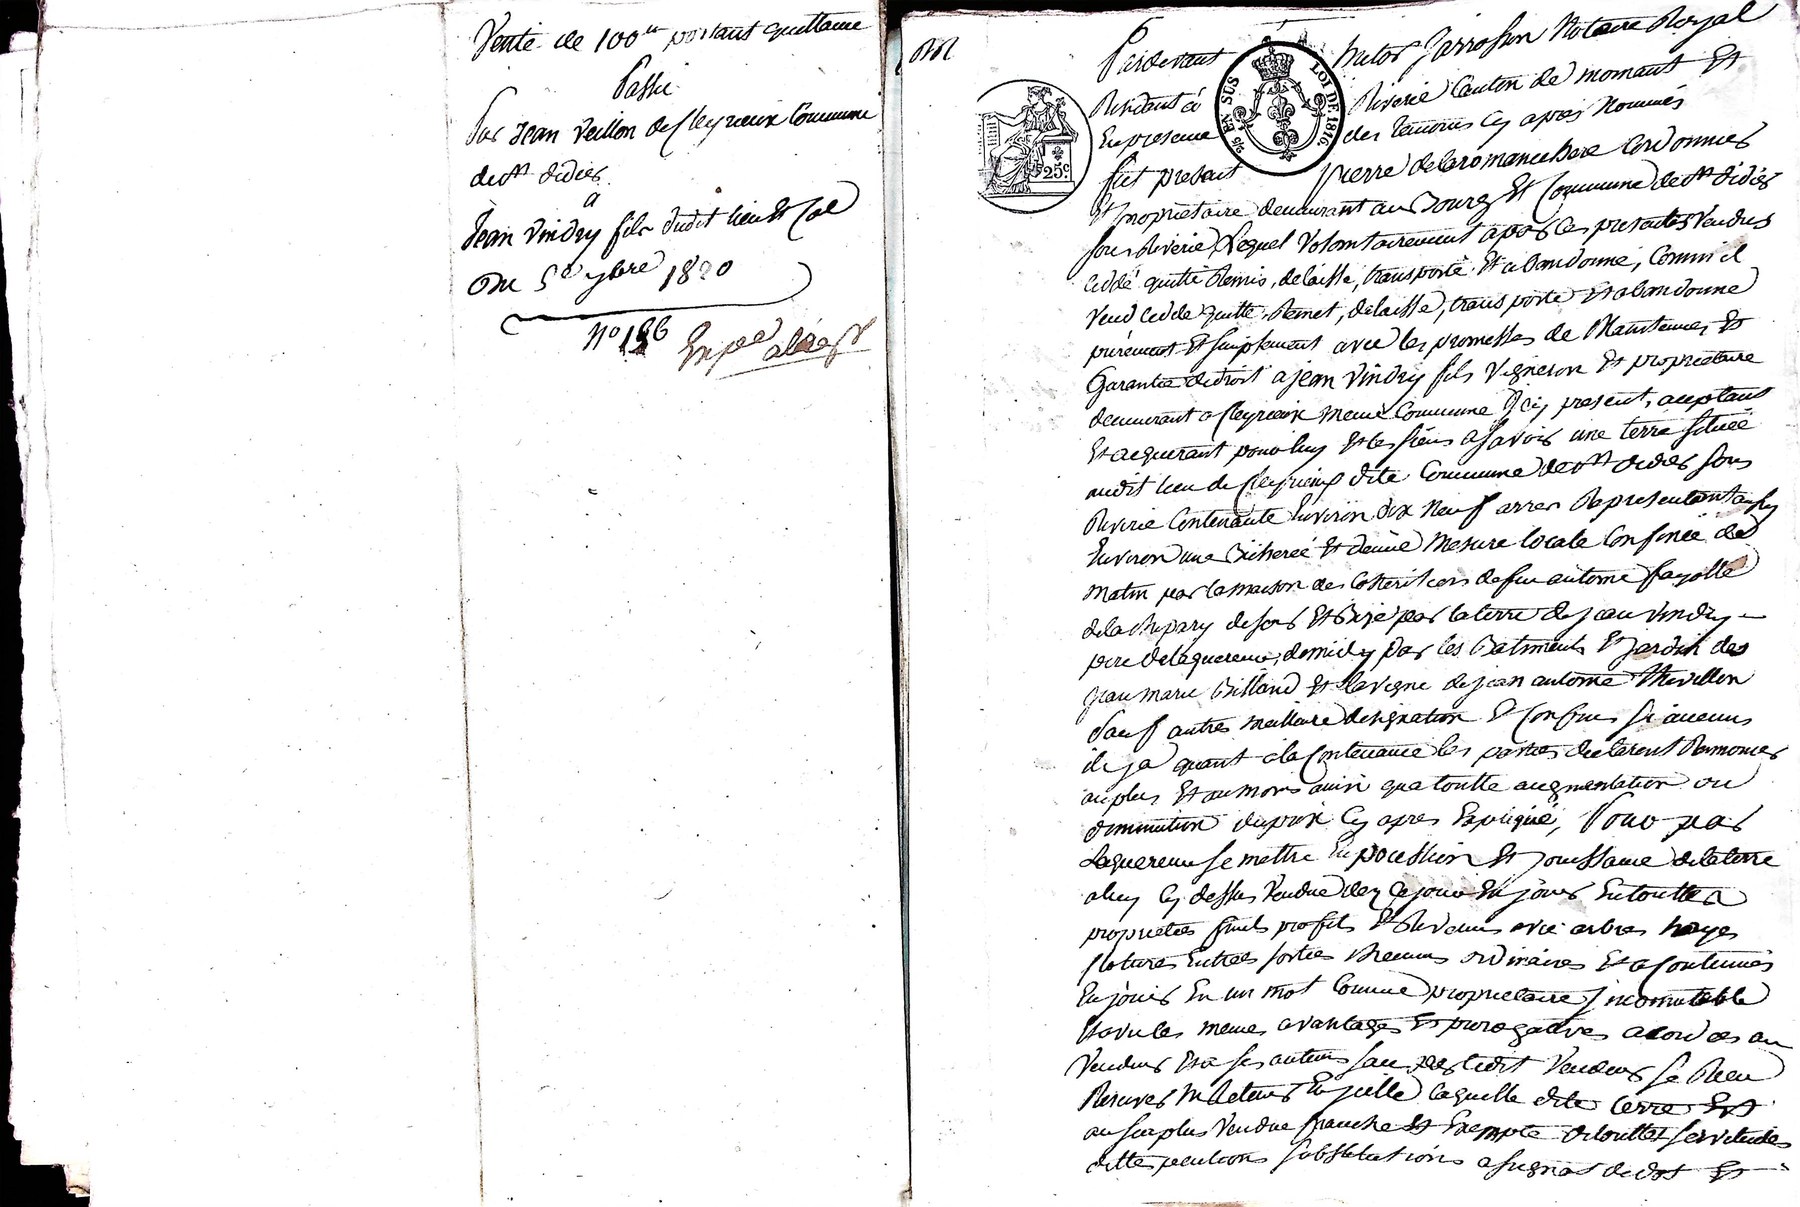 Vente de 100 ft portant quittance
Passée
Par Jean Veillon de fleyrieux Commune
de St didier
a
Jean Vindry fils dudit lieu et Col
Du 5e 7bre 1820
No 186
Exped
Pardevant hector Jarrosson Notaire Royal
Residant à Riverie Canton de mornant Et
En presence des temoins Cy apres Nommés
fut present pierre delaromanchere Cordonnier
Et proprietaire demeurant au Bourg Et Commune de St didier
sous Riverie, Lequel Volontairement a par Ces presentes Vendus
cédé quitté Remis, delaissé, transporté Et abandonné, Comm'il
Vend cedde quitte Remet, délaisse, transporte Et abandonne
purement Et simplement avec les promesses de Maintenues Et
Garantie de droit a jean Vindry fils Vigneron Et proprietaire
demeurant a fleyrieux meme Commune Icy present, aceptant
Et acquerant pour luy Et les siens a savoir une terre située
audit lieu de fleyrieux dite Commune de St didier sous
Riverie Contenante Environ dix Neuf arres Representant
Environ une Bicherée Et demie Mesure locale Confinée de
matin par la maison des Cohéritiers de feu antoine fayolle
de la Chipary de soir Et Bize par la terre de jean Vindry
pere de laquereur, de midy Par les Batiments Et jardin de
jean marie Billand Et la vigne de jean antoine Thevillon
Sauf autres meilleure designation Et Confins si aucuns
il y a quant a la Contenance les parties declarent Renoncer
au plus Et au moins ainsi qua toutte augmentation ou
diminution du prix Cy apres Expliqué, Pour par
Laquereur se mettre En pocession Et jouissance de la terre
a luy Cy dessus Vendue dez Ce jour En jouir En toutte
proprietés fruits profits Et Revenus avec arbres hayes
Clotures Entrées sorties Chemins ordinaires Et acoutumés
En jouir En un mot Comme proprietaire incomutable
Et avec les memes avantages Et prerogatives acordées au
Vendeur Et a ses auteurs sans par ledit Vendeur se Rien
Reserver ny Retenir En jcelle laquelle dite terre Est
au surplus Vendue franche Et Exempte de touttes servitudes
dettes pentions substitutions asignat de dot Et
25c.
5/6 EN SUS
LOI DE 1816.